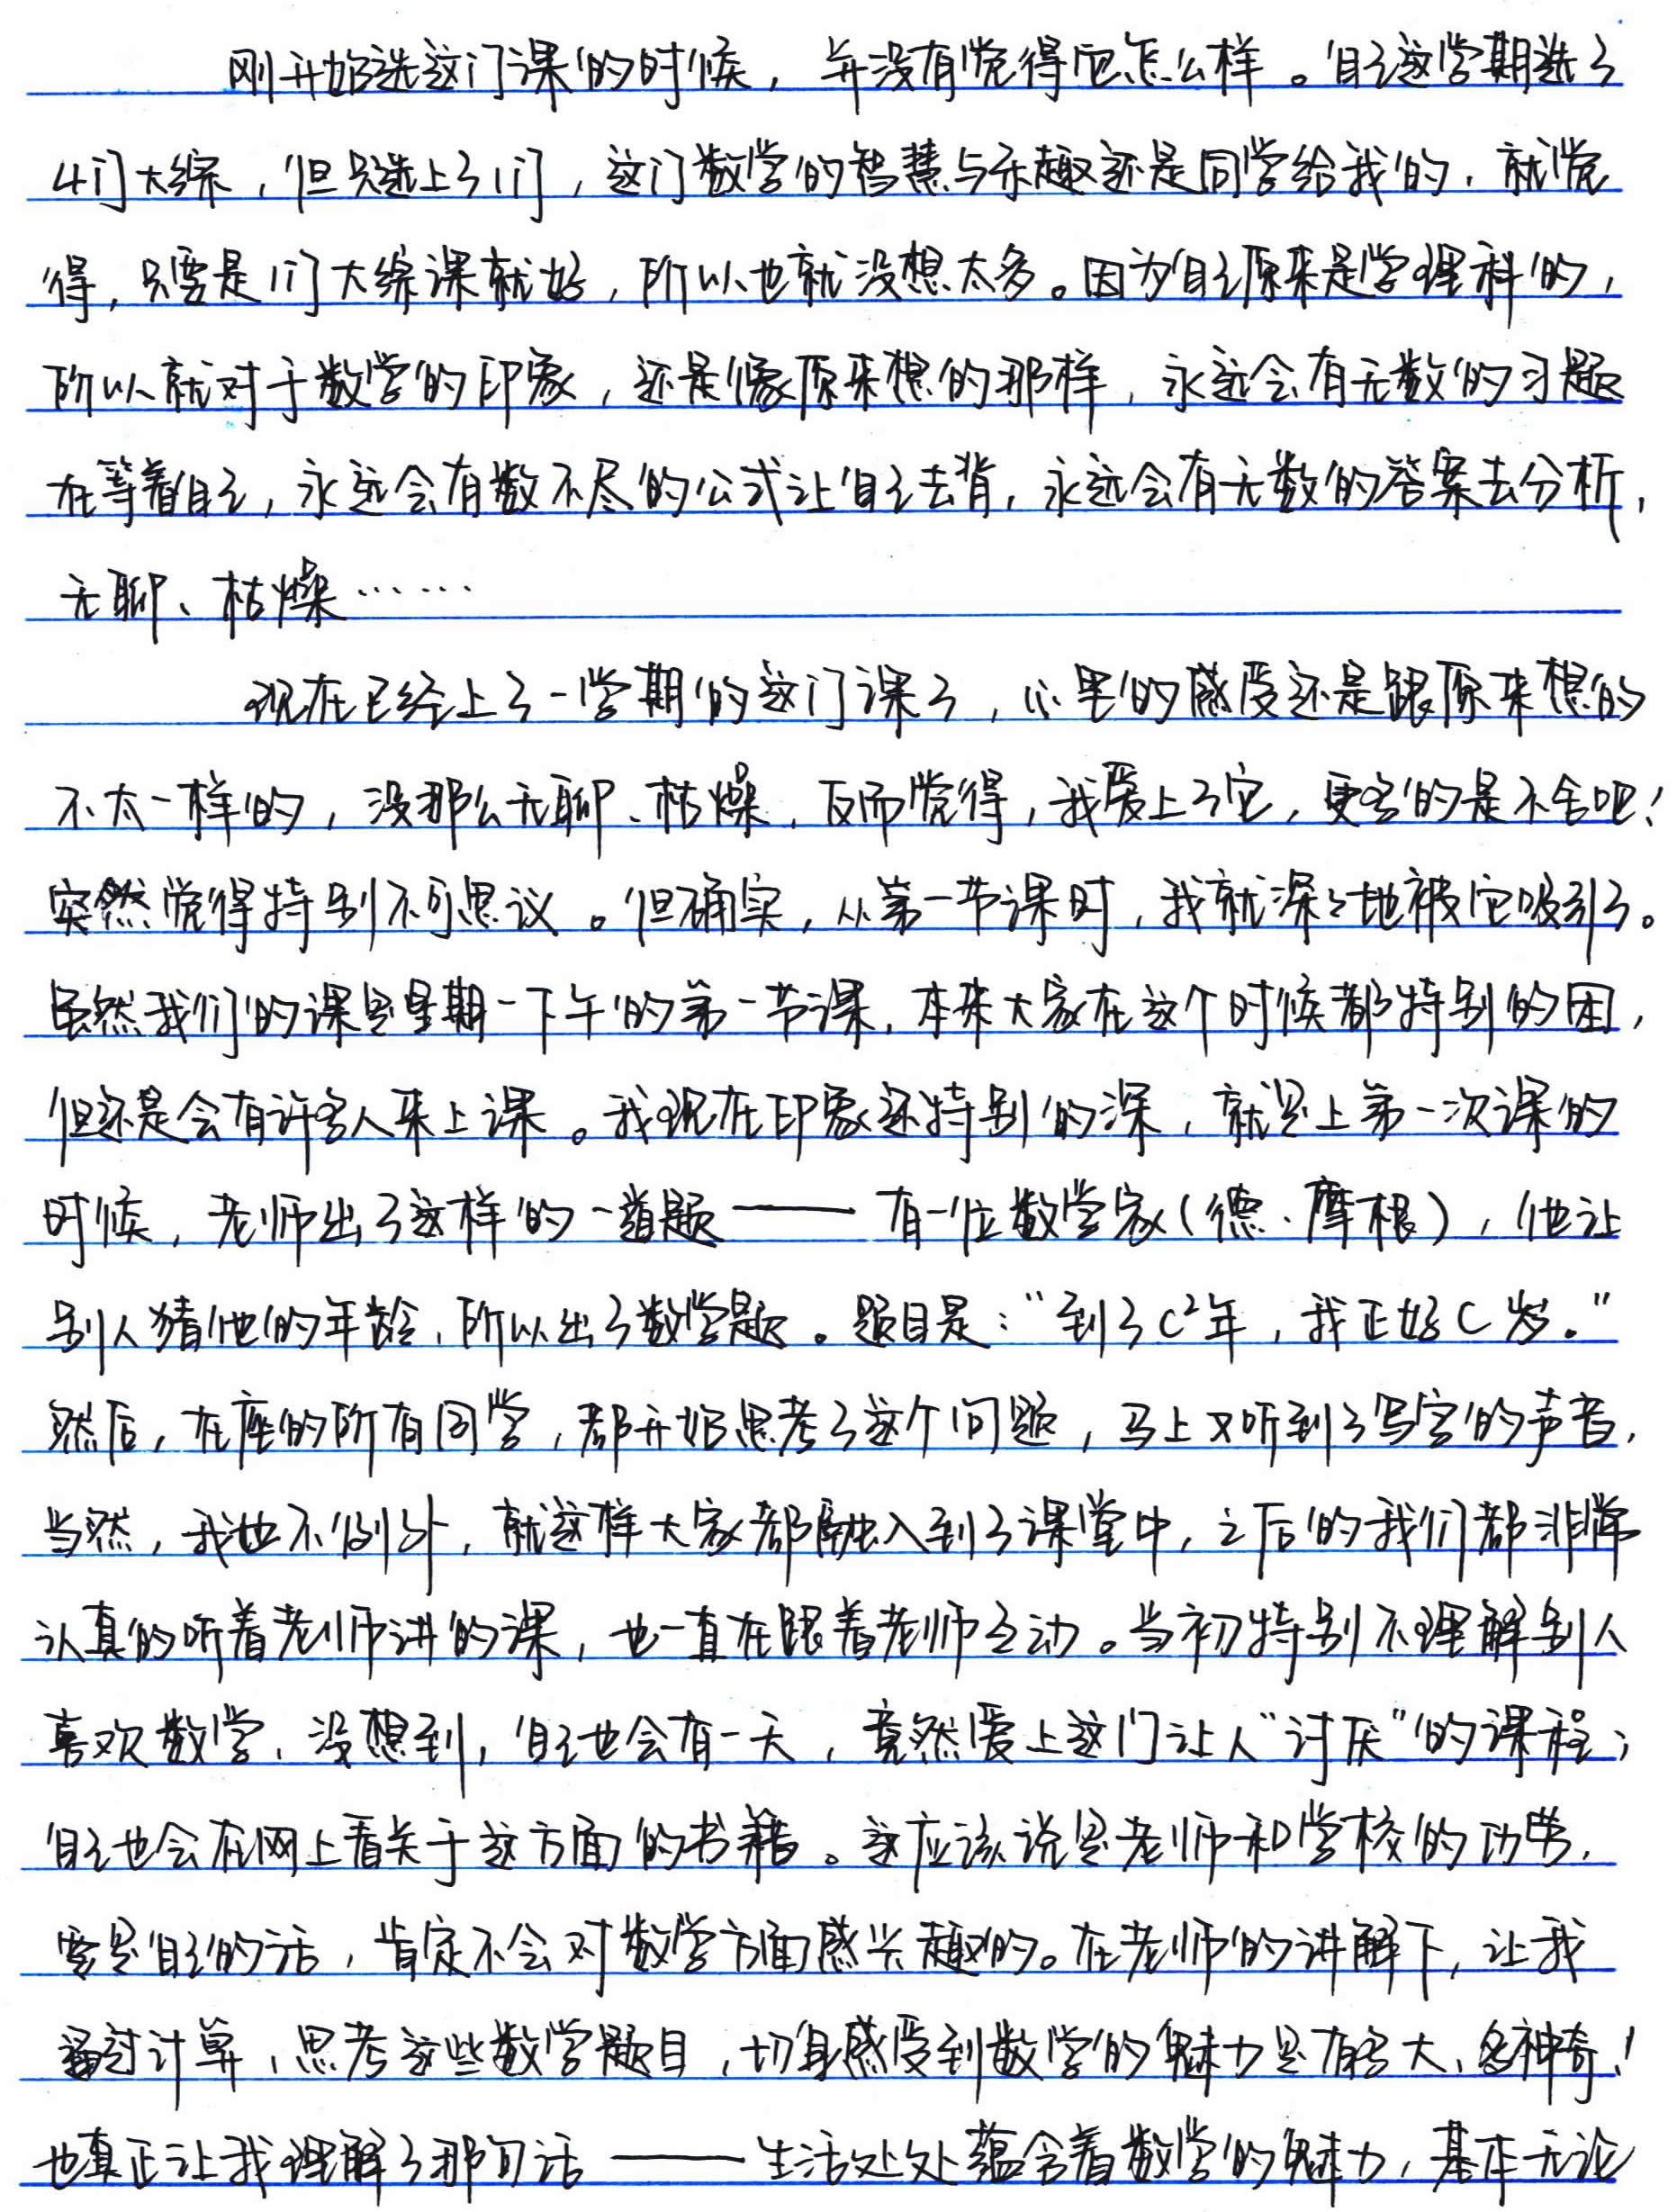 刚开始选这门课的时候，并没有觉得它怎么样。自己这学期选了
4门大综，但只选上了1门，这门数学的智慧与乐趣还是同学给我的，就觉
得，只要是1门大综课就好，所以也就没想太多。因为自己原来是学理科的，
所以就对于数学的印象，还是像原来想的那样，永远会有无数的习题
在等着自己，永远会有数不尽的公式让自己去背，永远会有无数的答案去分析，
无聊、枯燥……
现在已经上了一学期的这门课了，心里的感受还是跟原来想的
不太一样的，没那么无聊、枯燥，反而觉得，我爱上了它，更多的是不舍吧！
突然觉得特别不可思议。但确实，从第一节课时，我就深深地被它吸引了。
虽然我们的课是星期一下午的第一节课，本来大家在这个时候都特别的困，
但还是会有许多人来上课。我现在印象还特别的深，就是上第一次课的
时候，老师出了这样的一道题——有一位数学家（德·摩根），他让
别人猜他的年龄，所以出了数学题。题目是：“到了C²年，我正好C岁。”
然后，在座的所有同学，都开始思考了这个问题，马上又听到了写字的声音，
当然，我也不例外，就这样大家都融入到了课堂中，之后的我们都非常
认真的听着老师讲的课，也一直在跟着老师互动。当初特别不理解别人
喜欢数学，没想到，自己也会有一天，竟然爱上这门让人“讨厌”的课程；
自己也会在网上看关于这方面的书籍。这应该说是老师和学校的功劳，
要是自己的话，肯定不会对数学方面感兴趣的。在老师的讲解下，让我
通过计算，思考这些数学题目，切身感受到数学的魅力是有多大、多神奇！
也真正让我理解了那句话——生活处处蕴含着数学的魅力，基本无论